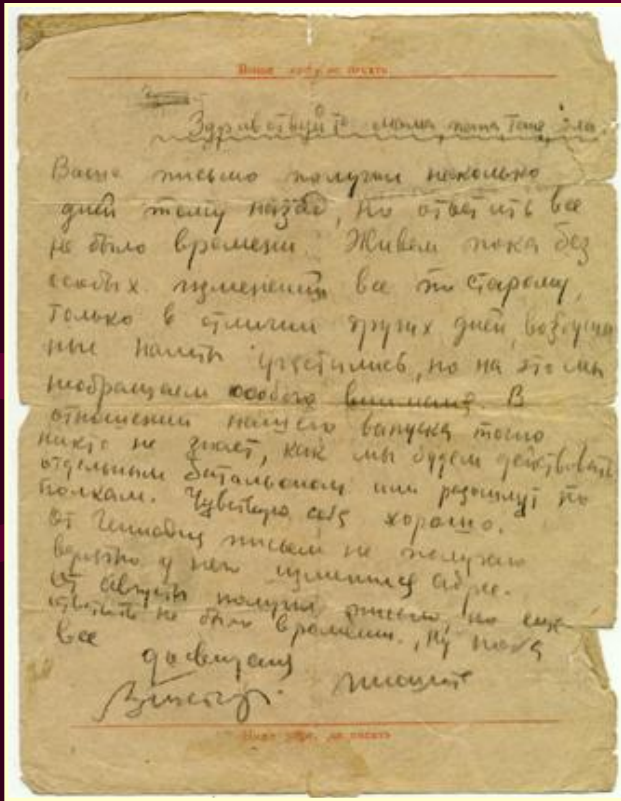 Выше черты не писать
Здравствуйте мама, папа, Таня,
Ваше письмо получил несколько
дней тому назад, но ответить все
не было времени. Живем пока без
особых изменений все по старому,
только в отличии других дней, воздуш
ные налеты участились, но на это мы
необращаем особого внимания. В
отношении нашего выпуска точно
никто не знает, как мы будем действовать
отдельным батальоном или разошлют по
полкам. Чувствую себя хорошо.
От Геннадия писем не получаю
вероятно у него изменился адрес.
От Августы получил письмо, но еще
ответить не было времени. Ну пока
все
до свидания
пишите
Ниже черты не писать